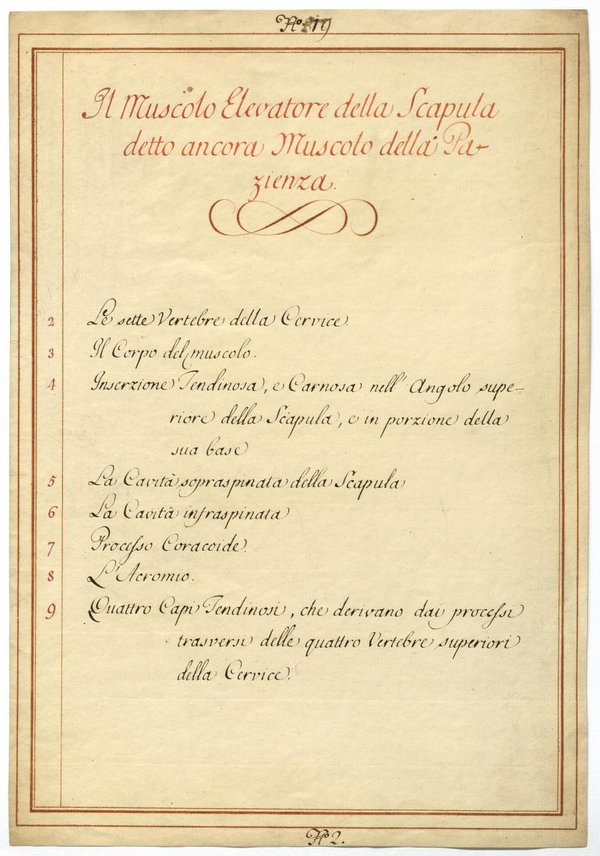 No. 19
Il Muscolo Elevatore della Scapula
detto ancora Muscolo della Pa-
zienza.
2 Le sette Vertebre della Cervice.
3 Il Corpo del muscolo.
4 Inserzione Tendinosa, e Carnosa nell' Angolo supe-
riore della Scapula, e in porzione della
sua base
5 La Cavità sopraspinata della Scapula
6 La Cavità infraspinata
7 Processo Coracoide.
8 L'Acromio.
9 Quattro Capi Tendinosi, che derivano dai processi
trasversi delle quattro Vertebre superiori
della Cervice.
No 2.